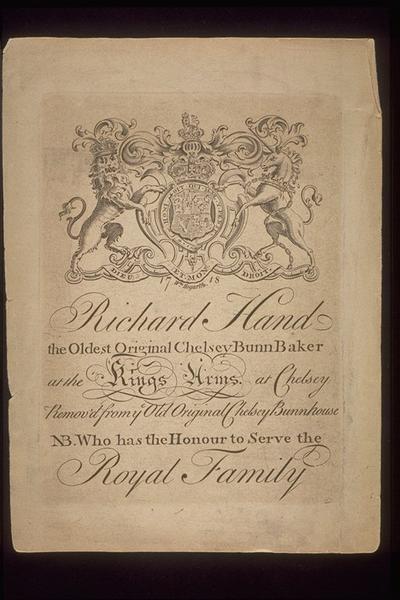 HONI SOIT QUI
DIEU ET MON DROIT.
17 Wm Hogarth. 18
Richard Hand
the Oldest Original Chelsey Bunn Baker
at the Kings Arms. at Chelsey
Remov'd from ye Old Original Chelsey Bunnhouse
NB. Who has the Honour to Serve the
Royal Family